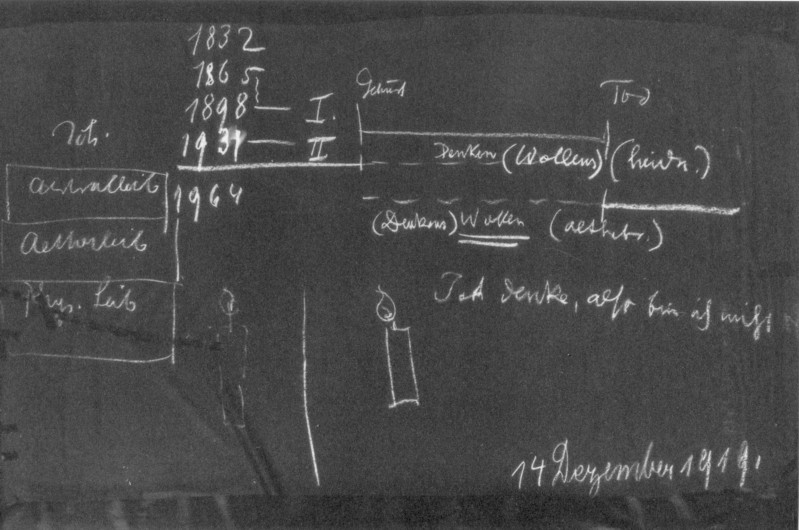 1832
1865
1898 — I.
1931 — II
1964
Ich.
Astralleib
Aetherleib
Phys. Leib
Geburt
Tod
Denken (Wollens) (heidn.)
(Denkens) Wollen (aetherr.)
Ich denke, also bin ich nicht
14 Dezember 1919.